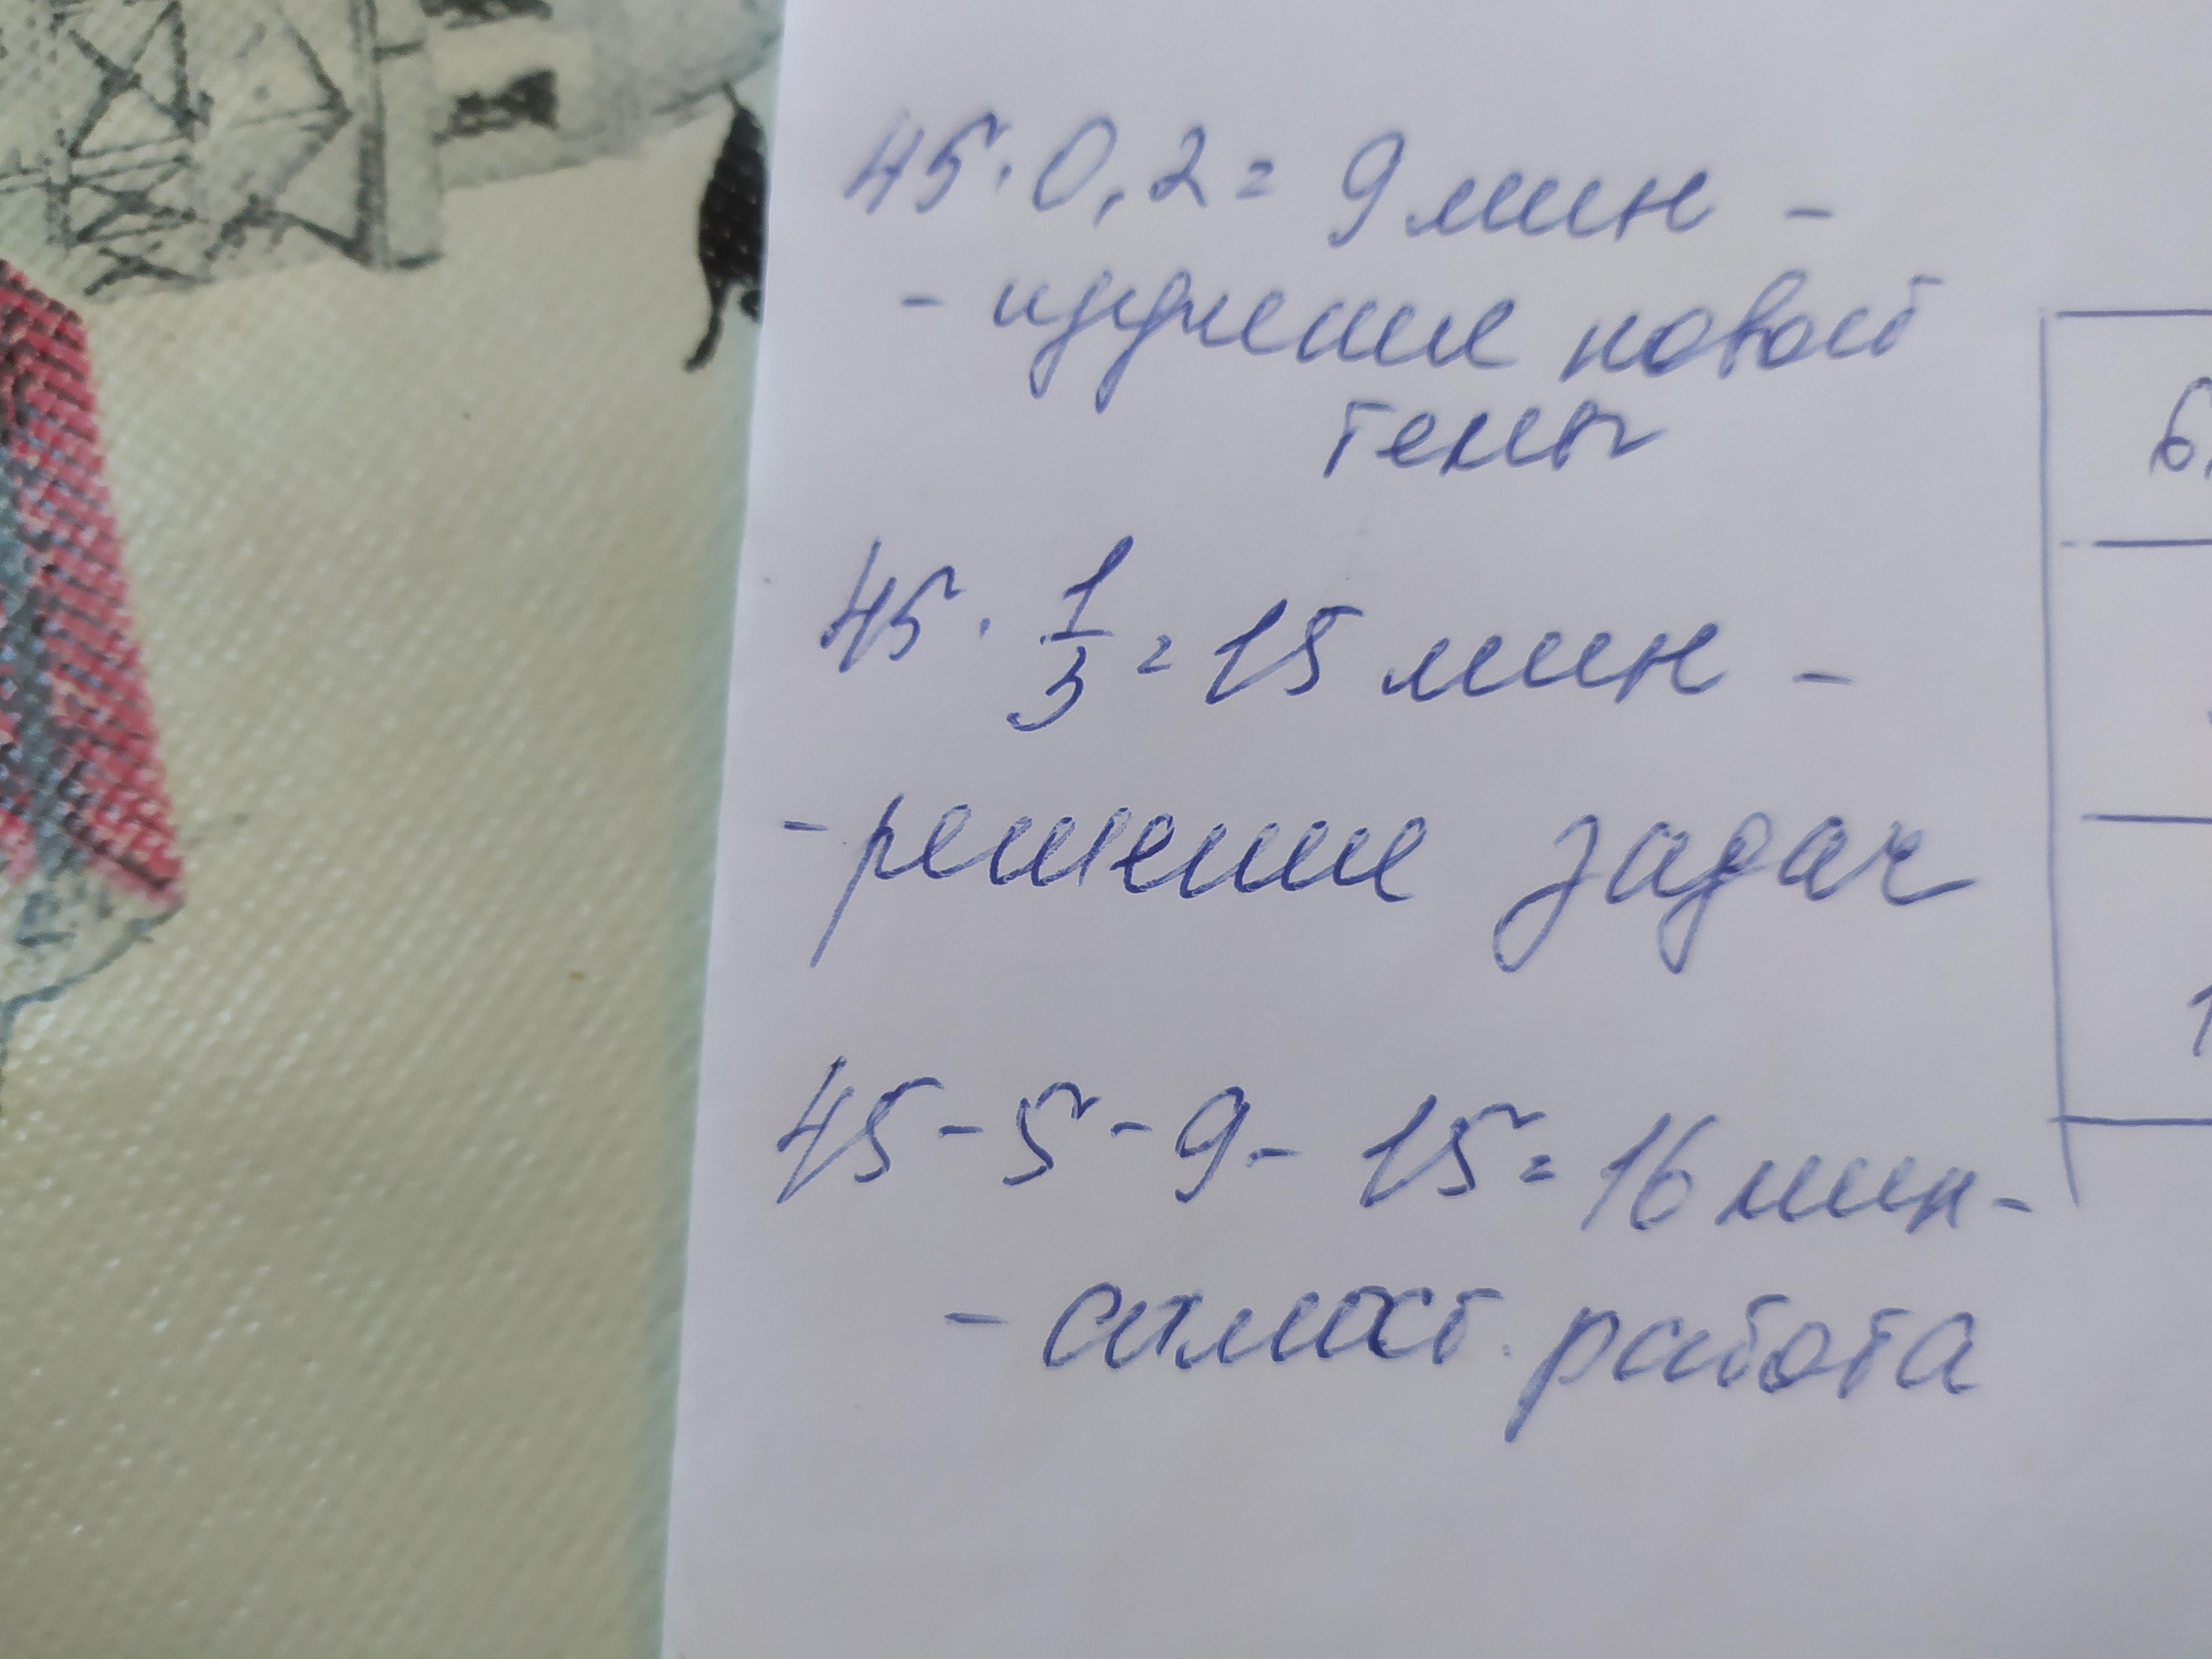 45 · 0,2 = 9 мин -
- изучение новой
темы
45 · 1/3 = 15 мин -
- решение задач
45 - 5 - 9 - 15 = 16 мин -
- самост. работа
6
1